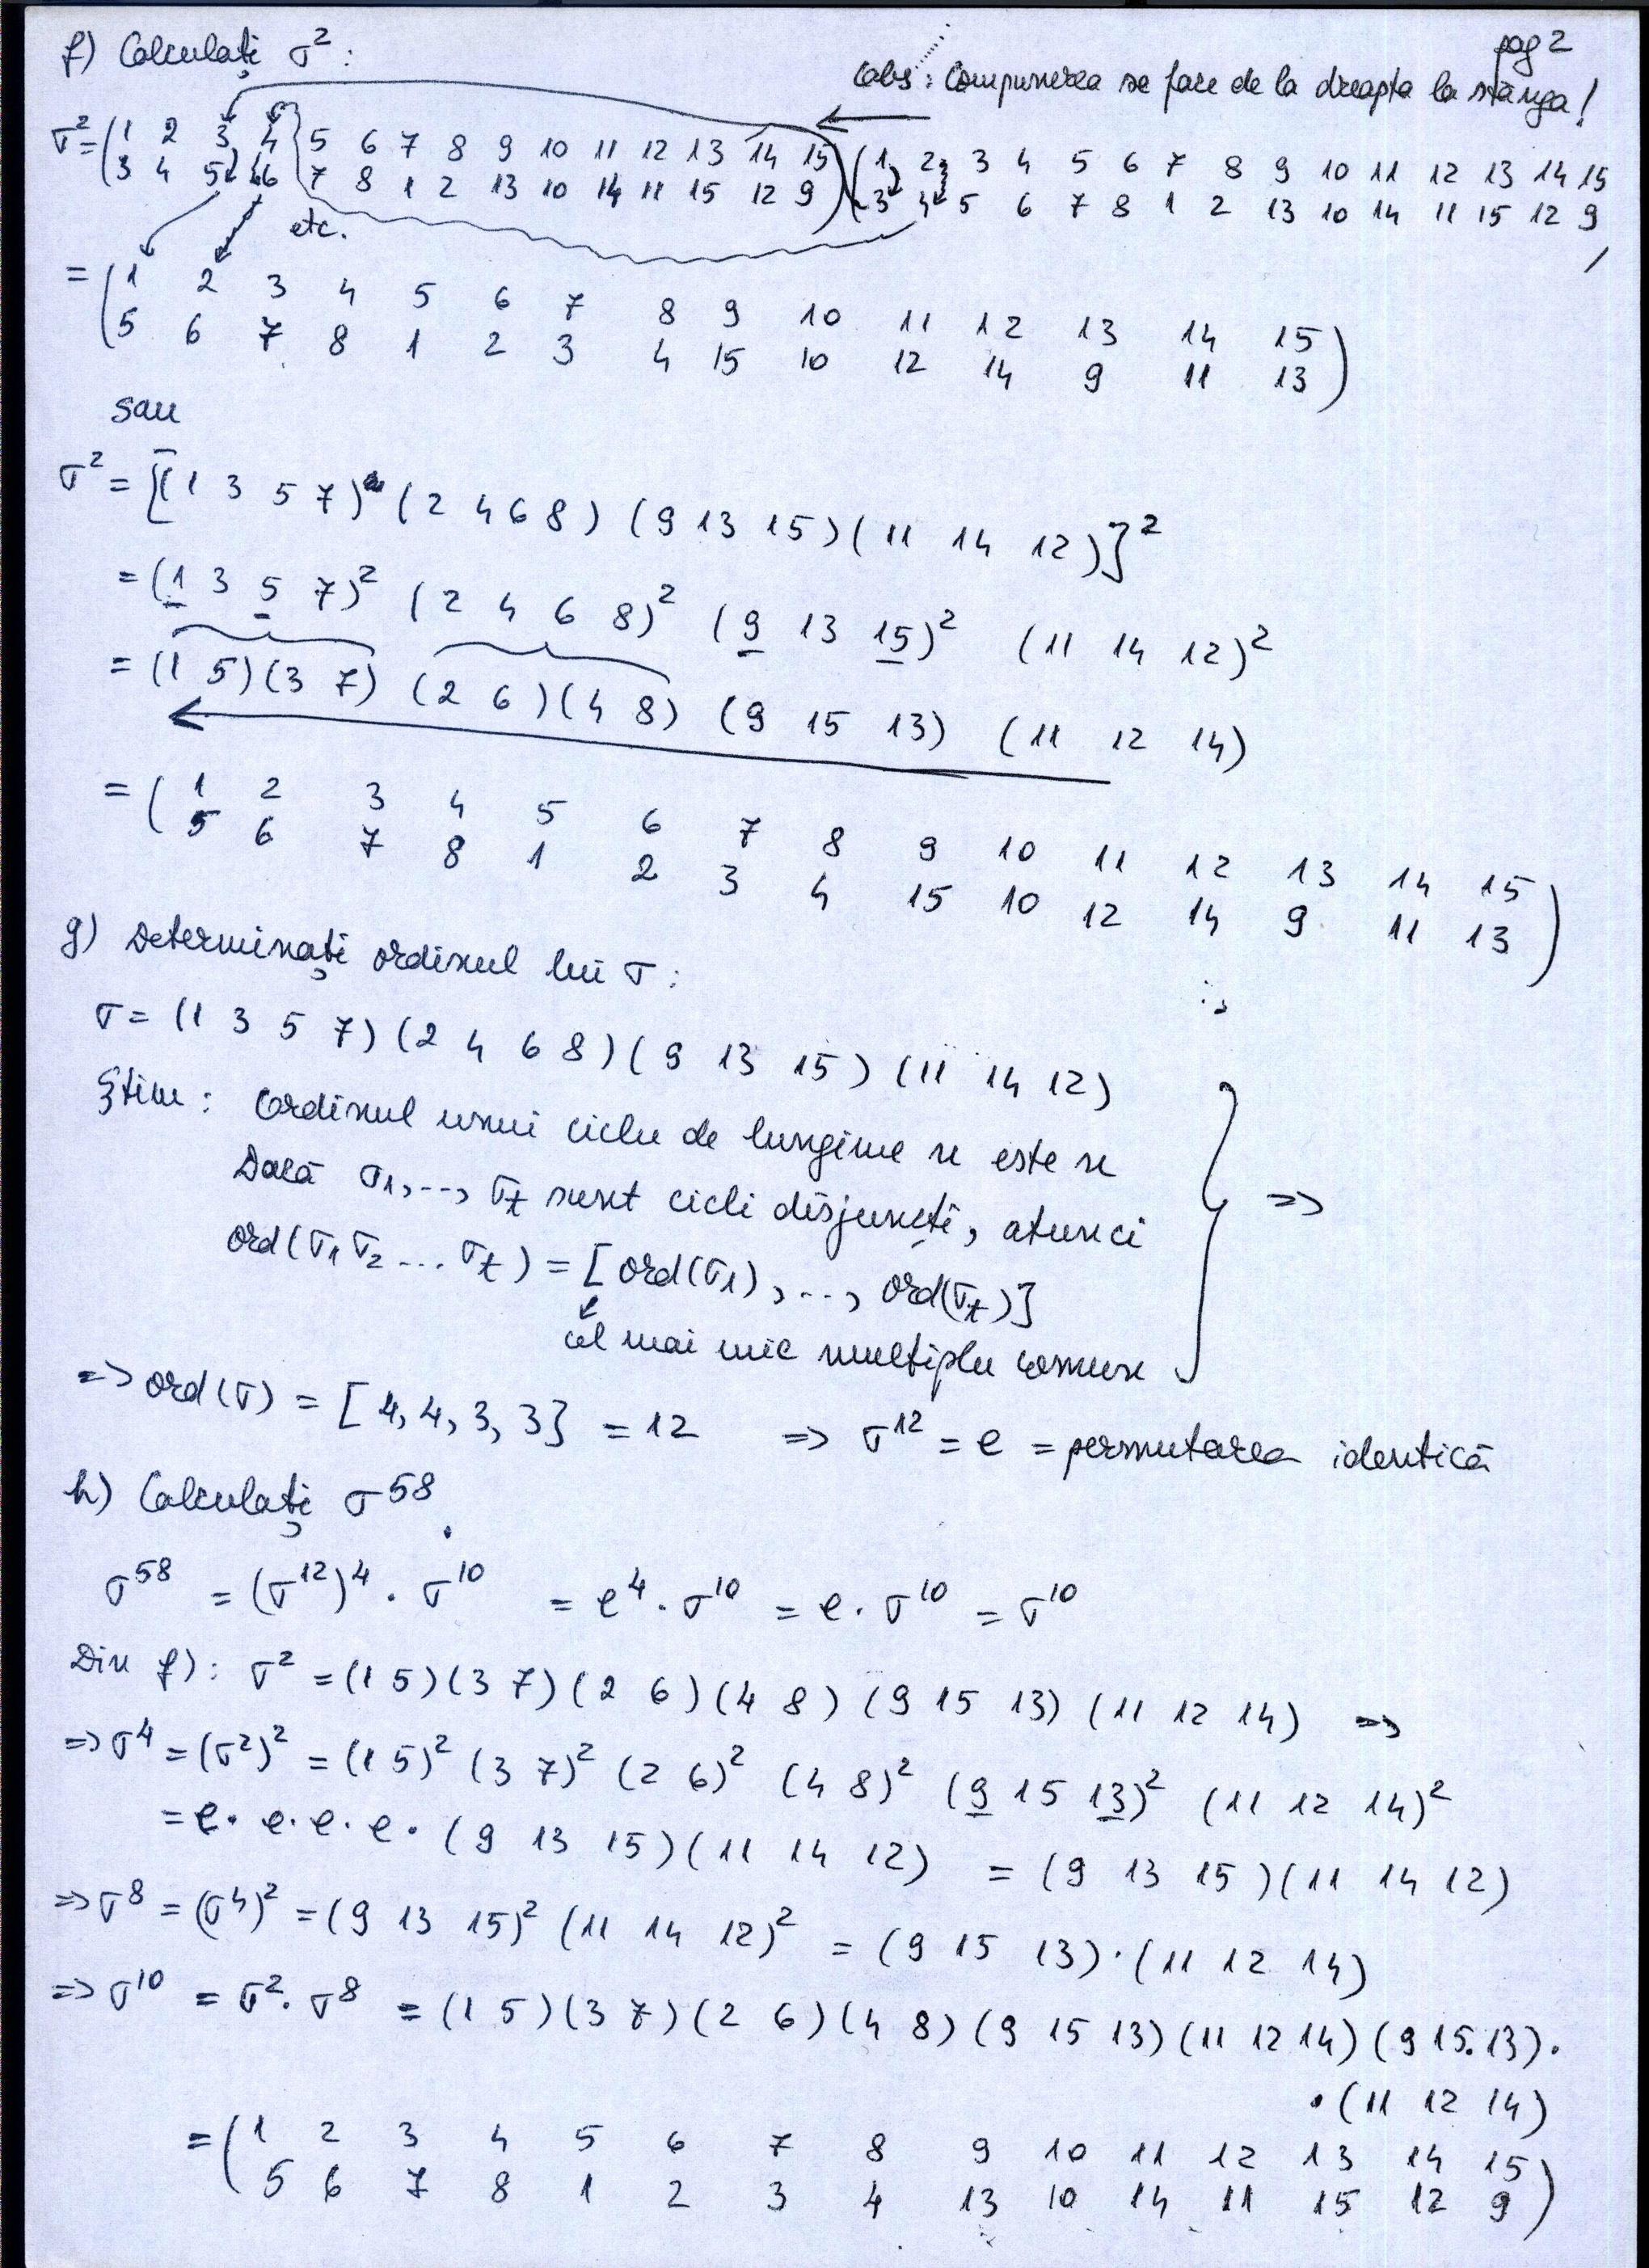 pag 2
f) Calculați σ² :
Obs: Compunerea se face de la dreapta la stânga!
σ² = ( 1 2 3 4 5 6 7 8 9 10 11 12 13 14 15 ) ( 1 2 3 4 5 6 7 8 9 10 11 12 13 14 15
3 4 5 6 7 8 1 2 13 10 14 11 15 12 9 ) ( 3 4 5 6 7 8 1 2 13 10 14 11 15 12 9
etc.
= ( 1 2 3 4 5 6 7 8 9 10 11 12 13 14 15
5 6 7 8 1 2 3 4 15 10 12 14 9 11 13 )
sau
σ² = [(1 3 5 7) (2 4 6 8) (9 13 15) (11 14 12)]²
= (1 3 5 7)² (2 4 6 8)² (9 13 15)² (11 14 12)²
= (1 5)(3 7) (2 6)(4 8) (9 15 13) (11 12 14)
= ( 1 2 3 4 5 6 7 8 9 10 11 12 13 14 15
5 6 7 8 1 2 3 4 15 10 12 14 9 11 13 )
g) Determinați ordinul lui σ :
σ = (1 3 5 7)(2 4 6 8)(9 13 15)(11 14 12)
Știm : Ordinul unui ciclu de lungime n este n
Dacă σ₁,..., σₜ sunt cicli disjuncți, atunci
ord(σ₁σ₂...σₜ) = [ord(σ₁),..., ord(σₜ)] =>
cel mai mic multiplu comun
=> ord(σ) = [4, 4, 3, 3] = 12 => σ¹² = e = permutarea identică
h) Calculați σ⁵⁸.
σ⁵⁸ = (σ¹²)⁴ · σ¹⁰ = e⁴ · σ¹⁰ = e · σ¹⁰ = σ¹⁰
Din f): σ² = (1 5)(3 7)(2 6)(4 8)(9 15 13)(11 12 14) =>
=> σ⁴ = (σ²)² = (1 5)² (3 7)² (2 6)² (4 8)² (9 15 13)² (11 12 14)²
= e · e · e · e · (9 13 15)(11 14 12) = (9 13 15)(11 14 12)
=> σ⁸ = (σ⁴)² = (9 13 15)² (11 14 12)² = (9 15 13)·(11 12 14)
=> σ¹⁰ = σ² · σ⁸ = (1 5)(3 7)(2 6)(4 8)(9 15 13)(11 12 14)(9 15 13)·
·(11 12 14)
= ( 1 2 3 4 5 6 7 8 9 10 11 12 13 14 15
5 6 7 8 1 2 3 4 13 10 14 11 15 12 9 )